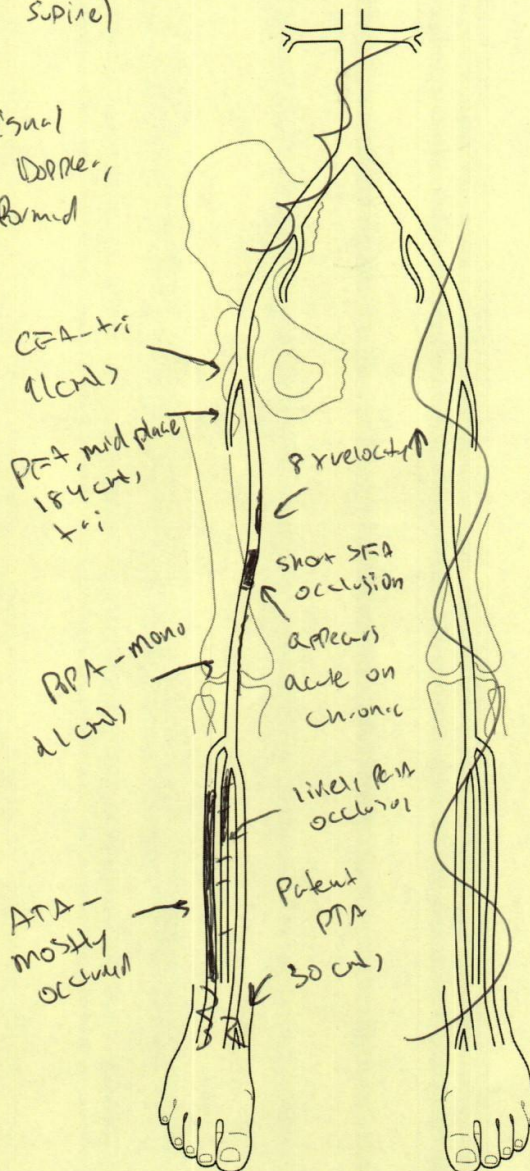 supine)
signal
Doppler,
formed
CFA - tri
91 cm/s
PFA, mid plaque
184 cm/s
tri
8 x velocity ↑
short SFA
occlusion
appears
acute on
chronic
POPA - mono
21 cm/s
likely
occlusion
Patent
PTA
30 cm/s
ATA -
mostly
occluded